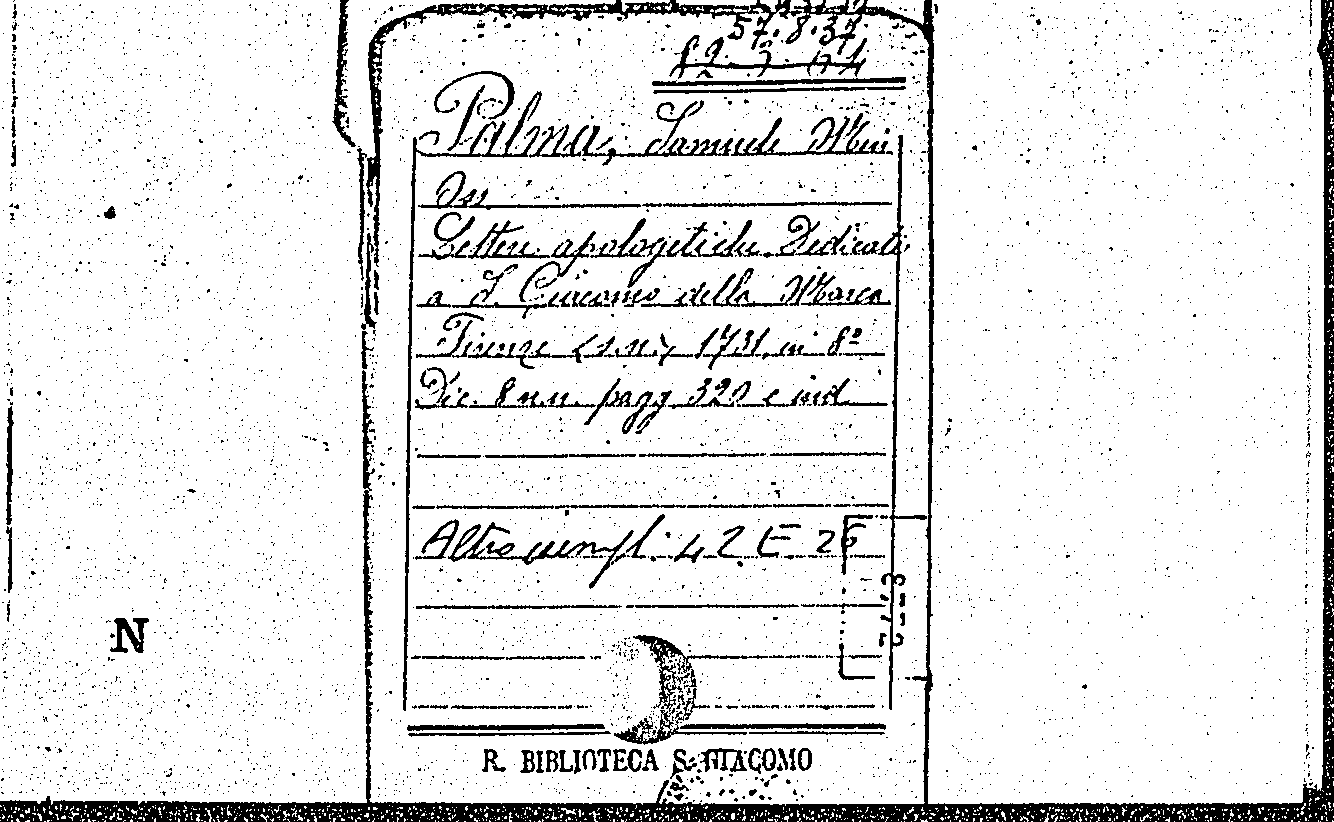 57.8.37
Palma, Samuele Min
Oss
Lettere apologetiche Dedicate
a S. Giacomo della Marca
Firenze <s.n.> 1731, in 8º
Dic. 8 n.n. pagg. 320 e ind
Altro esempl. 42 E 26
N
R. BIBLIOTECA S. GIACOMO